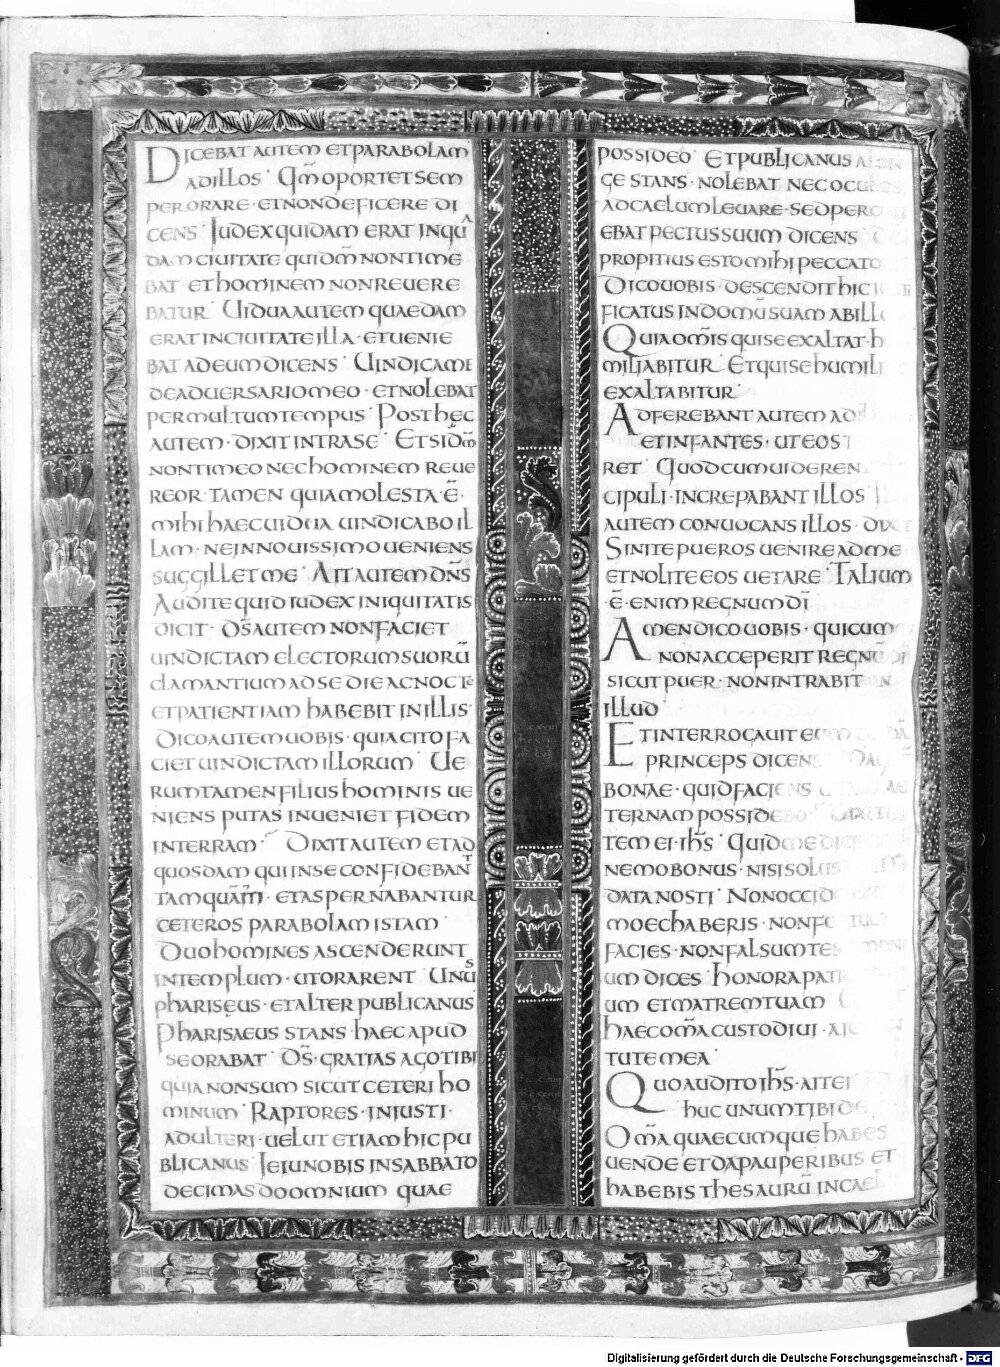 DICEBAT AUTEM ET PARABOLAM
AD ILLOS · QM̅ OPORTET SEM
PER ORARE · ET NON DEFICERE DI
CENS · IUDEX QUIDAM ERAT IN QUA
DAM CIUITATE QUI DM̅ NON TIME
BAT ET HOMINEM NON REUERE
BATUR · UIDUA AUTEM QUAEDAM
ERAT IN CIUITATE ILLA · ET UENIE
BAT AD EUM DICENS · UINDICA ME
DE ADUERSARIO MEO · ET NOLEBAT
PER MULTUM TEMPUS · POST HEC
AUTEM · DIXIT INTRA SE · ET SI DM̅
NON TIMEO NEC HOMINEM REUE
REOR · TAMEN QUIA MOLESTA E̅ ·
MIHI HAEC UIDUA UINDICABO IL
LAM · NE IN NOUISSIMO UENIENS
SUGGILLET ME · AIT AUTEM DN̅S
AUDITE QUID IUDEX INIQUITATIS
DICIT · DS̅ AUTEM NON FACIET
UINDICTAM ELECTORUM SUORU̅
CLAMANTIUM AD SE DIE AC NOCTE
ET PATIENTIAM HABEBIT IN ILLIS ·
DICO AUTEM UOBIS · QUIA CITO FA
CIET UINDICTAM ILLORUM · UE
RUM TAMEN FILIUS HOMINIS UE
NIENS PUTAS INUENIET FIDEM
IN TERRAM · DIXIT AUTEM ET AD
QUOSDAM QUI IN SE CONFIDEBANT
TAMQUAM · ET ASPERNABANTUR
CETEROS PARABOLAM ISTAM
DUO HOMINES ASCENDERUNT
IN TEMPLUM · UT ORARENT UNUS
PHARISĘUS · ET ALTER PUBLICANUS
PHARISAEUS STANS · HAEC APUD
SE ORABAT · DS̅ · GRATIAS AGO TIBI
QUIA NON SUM SICUT CETERI HO
MINUM · RAPTORES · INIUSTI ·
ADULTERI · UELUT ETIAM HIC PU
BLICANUS · IEIUNO BIS IN SABBATO
DECIMAS DO OMNIUM QUAE
POSSIDEO · ET PUBLICANUS A
GE STANS · NOLEBAT NEC OCULOS
AD CAELUM LEUARE · SED PERC
EBAT PECTUS SUUM DICENS
PROPITIUS ESTO MIHI PECCATO
DICO UOBIS · DESCENDIT HIC
FICATUS IN DOMU̅ SUAM AB ILLO
QUIA OM̅IS QUI SE EXALTAT · H
MILIABITUR · ET QUI SE HUMILI
EXALTABITUR ·
ADFEREBANT AUTEM AD
ET INFANTES · UT EOS T
RET · QUOD CUM UIDEREN
CIPULI · INCREPABANT ILLOS ·
AUTEM CONUOCANS ILLOS · DIX
SINITE PUEROS UENIRE AD ME ·
ET NOLITE EOS UETARE · TALIUM
E̅ · ENIM REGNUM DI̅
AMEN DICO UOBIS · QUICUM
NON ACCEPERIT REGNU̅ DI̅
SICUT PUER · NON INTRABIT IN
ILLUD
ET INTERROGAUIT EUM
PRINCEPS DICENS
BONAE · QUID FACIENS
TERNAM POSSIDEBO
TEM EI · IHS̅ · QUID ME DIC
NEMO BONUS · NISI SOLUS
DATA NOSTI · NON OCCID
MOECHABERIS · NON FU
FACIES · NON FALSUM TES
UM DICES · HONORA PATR
UM ET MATREM TUAM
HAEC OM̅A CUSTODIUI
TUTE MEA ·
QUO AUDITO IHS̅ · AIT EI
HUC UNUM TIBI DE
OM̅A QUAECUMQUE HABES
UENDE ET DA PAUPERIBUS ET
HABEBIS THESAURU̅ IN CAEL
Digitalisierung gefördert durch die Deutsche Forschungsgemeinschaft - DFG